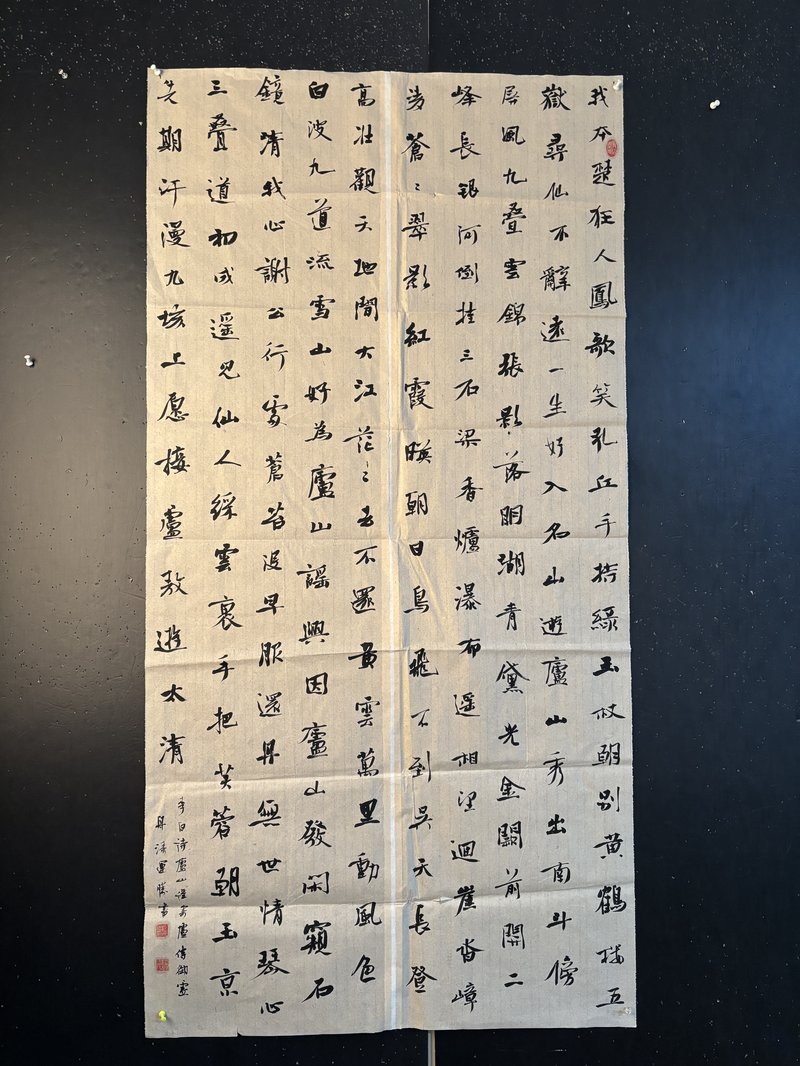 我本楚狂人鳳歌笑孔丘手持綠玉杖朝别黄鶴樓五
嶽尋仙不辭遠一生好入名山遊廬山秀出南斗傍
屏風九疊雲錦張影落明湖青黛光金闕前開二
峰長銀河倒挂三石梁香爐瀑布遥相望迴崖沓嶂
凌蒼〻翠影紅霞暎朝日鳥飛不到吴天長登
高壯觀天地間大江茫〻去不還黄雲萬里動風色
白波九道流雪山好為廬山謡興因廬山發閑窺石
鏡清我心謝公行處蒼苔没早服還丹無世情琴心
三疊道初成遥見仙人綵雲裏手把芙蓉朝玉京
先期汗漫九垓上愿接盧敖遊太清
李白诗廬山谣寄盧侍御虚
丹溪運勝書